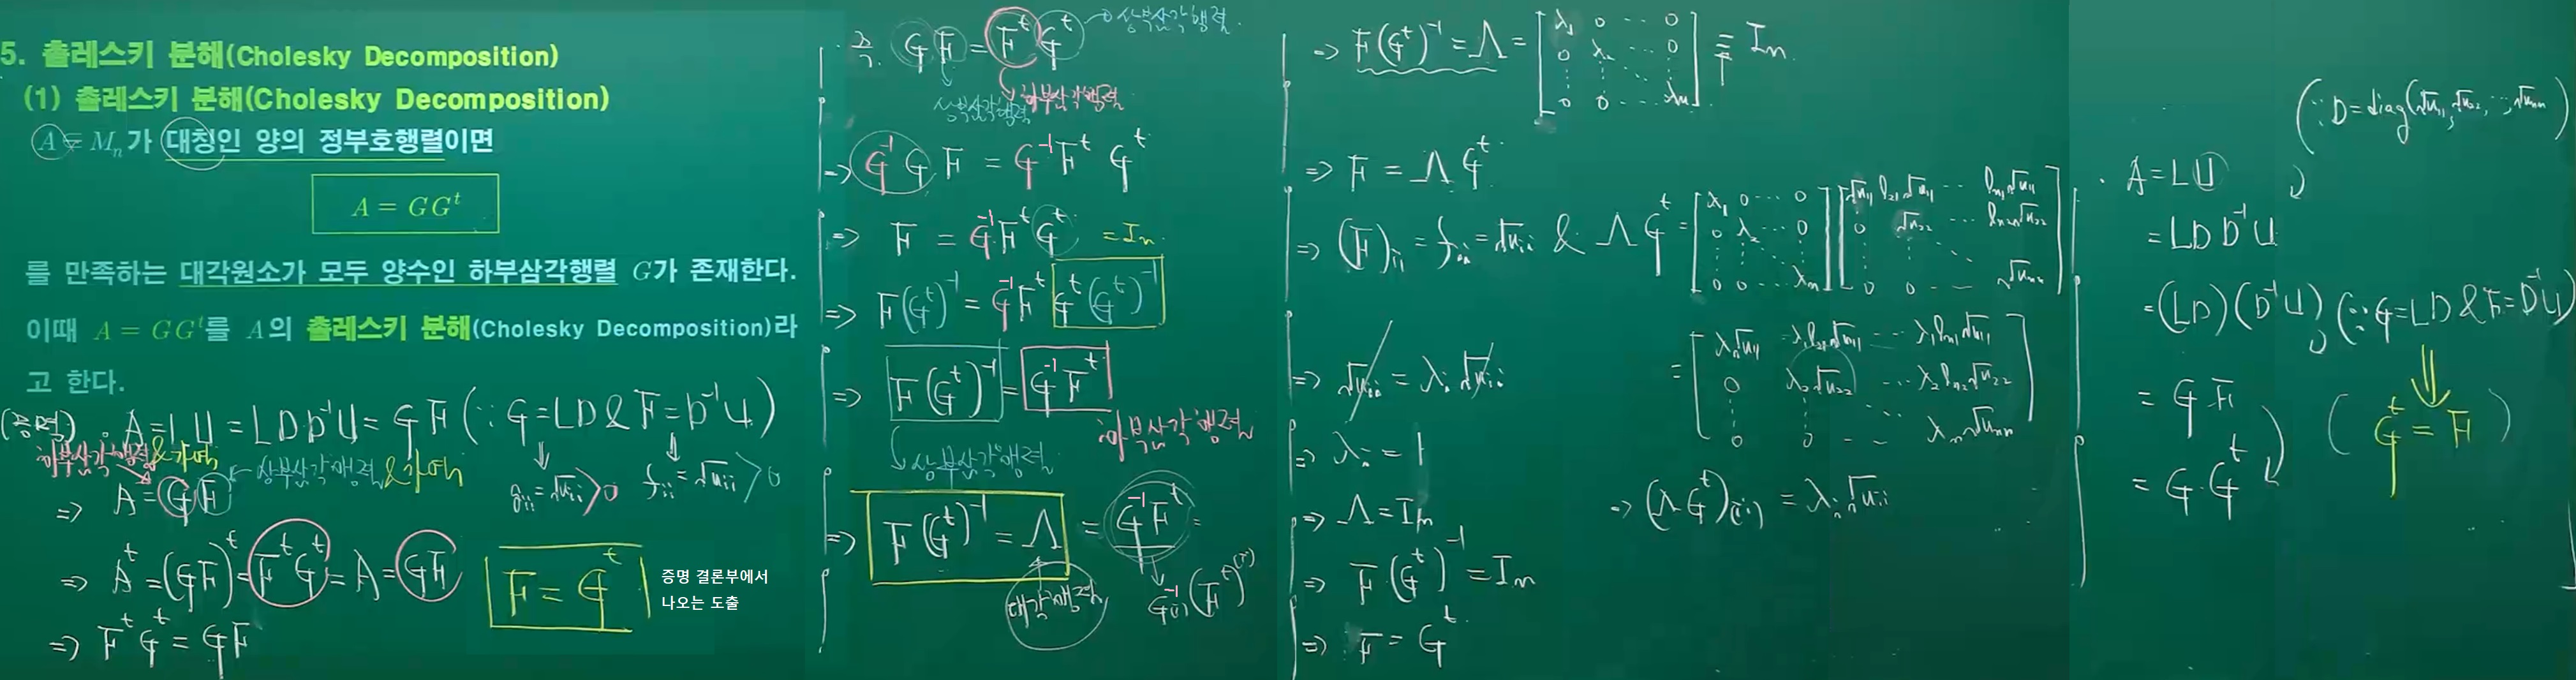 5. 촐레스키 분해(Cholesky Decomposition)
(1) 촐레스키 분해(Cholesky Decomposition)
A ∈ Mₙ가 대칭인 양의 정부호행렬이면
A = GGᵗ
를 만족하는 대각원소가 모두 양수인 하부삼각행렬 G가 존재한다.
이때 A = GGᵗ를 A의 촐레스키 분해(Cholesky Decomposition)라
고 한다.
(증명) · A = LU = LDD⁻¹U = GF (∵ G = LD & F = D⁻¹U)
하부삼각행렬 & 가역
상부삼각행렬 & 가역
gᵢᵢ = √uᵢᵢ > 0 fᵢᵢ = √uᵢᵢ > 0
⇒ A = GF
⇒ Aᵗ = (GF)ᵗ = FᵗGᵗ = A = GF
⇒ FᵗGᵗ = GF
F = Gᵗ
증명 결론부에서
나오는 도출
즉, GF = FᵗGᵗ → 상부삼각행렬
상부삼각행렬 하부삼각행렬
⇒ G⁻¹GF = G⁻¹FᵗGᵗ
⇒ F = G⁻¹FᵗGᵗ = Iₙ
⇒ F(Gᵗ)⁻¹ = G⁻¹FᵗGᵗ(Gᵗ)⁻¹
⇒ F(Gᵗ)⁻¹ = G⁻¹Fᵗ
상부삼각행렬 하부삼각행렬
⇒ F(Gᵗ)⁻¹ = Λ = G⁻¹Fᵗ =
대각행렬
⇒ F(Gᵗ)⁻¹ = Λ = [λ₁ 0 ⋯ 0
0 λ₂ ⋯ 0
⋮ ⋮ ⋱ ⋮
0 0 ⋯ λₙ] = Iₙ
⇒ F = ΛGᵗ
⇒ (F)ᵢᵢ = fᵢᵢ = √uᵢᵢ & ΛGᵗ = [λ₁ 0 ⋯ 0
0 λ₂ ⋯ 0
⋮ ⋮ ⋱ ⋮
0 0 ⋯ λₙ] [√u₁₁ l₂₁√u₁₁ ⋯ lₙ₁√u₁₁
0 √u₂₂ ⋯ lₙ₂√u₂₂
⋮ ⋮ ⋱ ⋮
0 0 ⋯ √uₙₙ]
= [λ₁√u₁₁ λ₁l₂₁√u₁₁ ⋯ λ₁lₙ₁√u₁₁
0 λ₂√u₂₂ ⋯ λ₂lₙ₂√u₂₂
⋮ ⋮ ⋱ ⋮
0 0 ⋯ λₙ√uₙₙ]
⇒ (ΛGᵗ)(ᵢᵢ) = λᵢ√uᵢᵢ
⇒ √uᵢᵢ = λᵢ√uᵢᵢ
⇒ λᵢ = 1
⇒ Λ = Iₙ
⇒ F(Gᵗ)⁻¹ = Iₙ
⇒ F = Gᵗ
(∵ D = diag(√u₁₁, √u₂₂, ⋯, √uₙₙ))
· A = LU
= LDD⁻¹U
= (LD)(D⁻¹U) (∵ G = LD & F = D⁻¹U)
= GF
(Gᵗ = F)
= G·Gᵗ